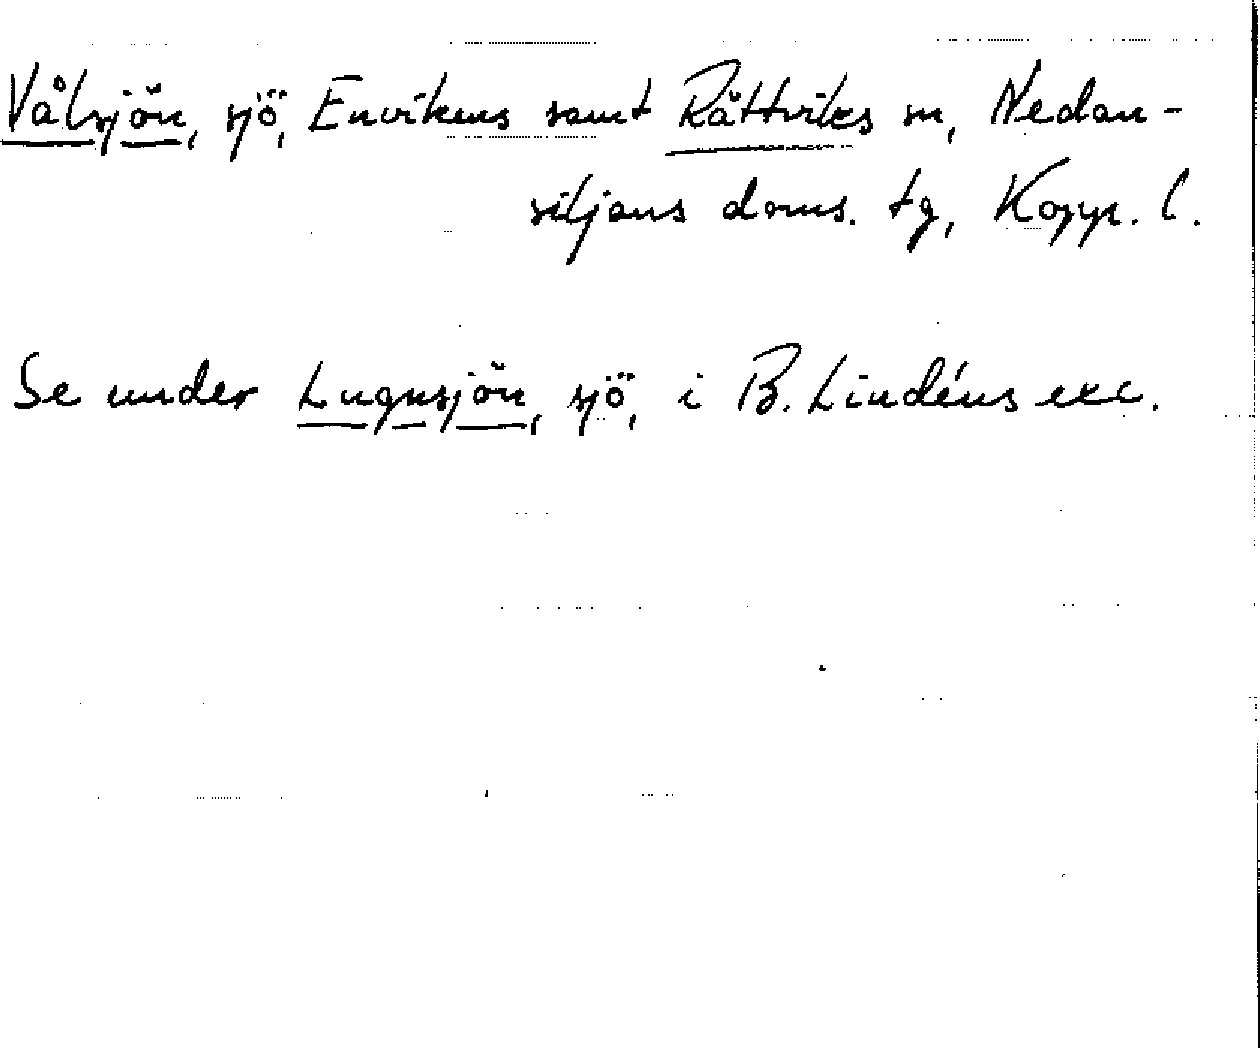 Vålsjön, sjö, Envikens samt Rättviks sn, Nedan-
siljans doms. tg, Kopp. l.
Se under Lugnsjön, sjö, i B. Lindéns exc.